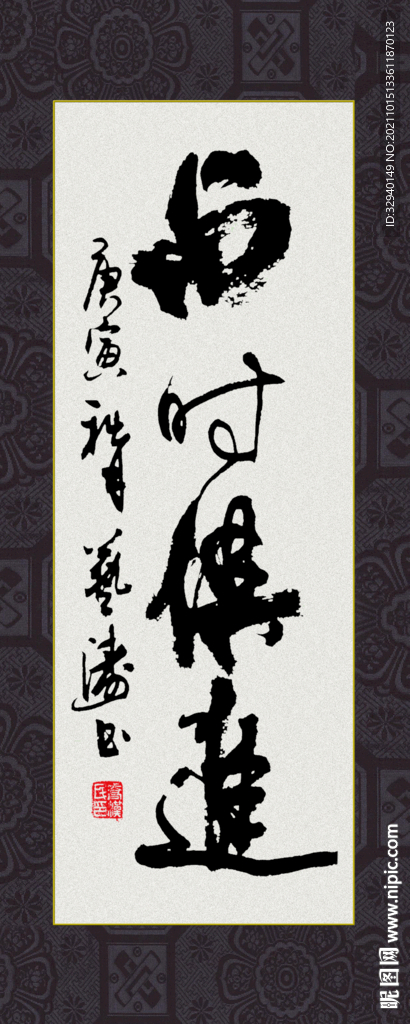 与时俱進
庚寅 秋月 藝濤 书
ID:32940149 NO:20211015133611870123
昵图网 www.nipic.com